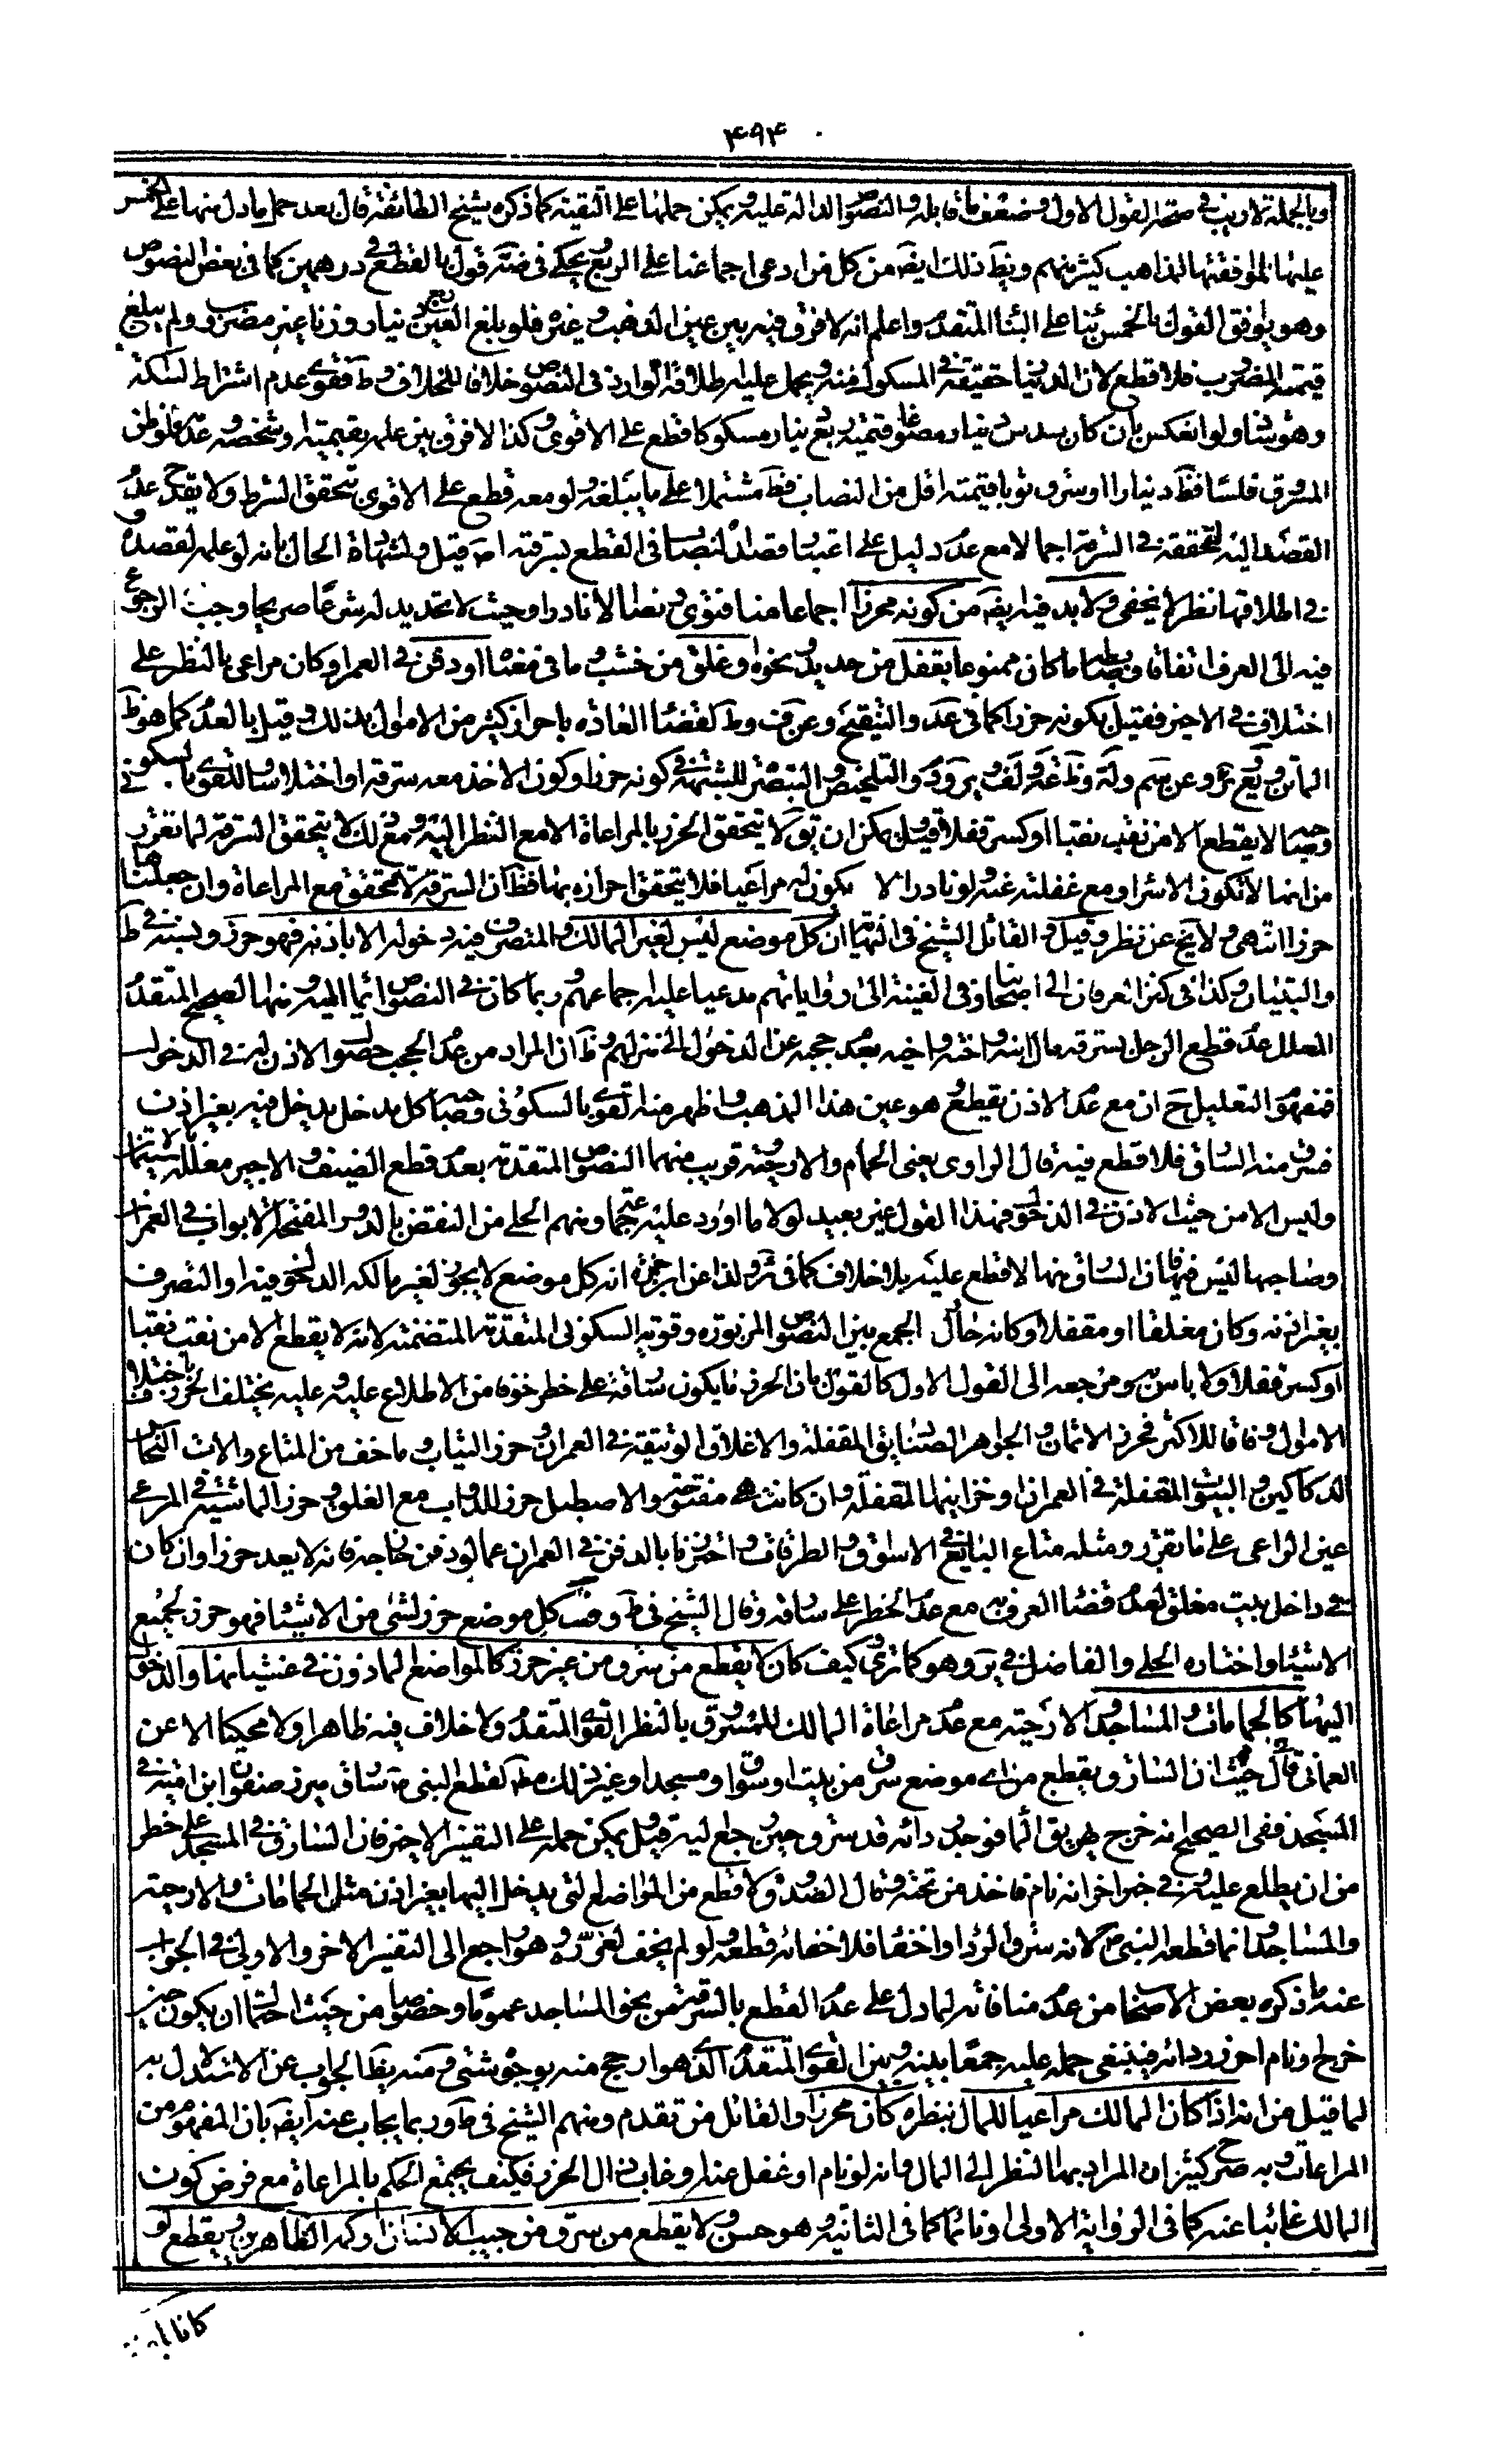 ۴۹۴
وبالجملة لا ريب في صحة القول الاول وضعف ما قابله والنصوص الدالة عليه ويمكن حملها على التقية كما ذكره شيخ الطائفة قال بعد حمل ما دل منها على الخمس
عليها لموافقتها لمذاهب كثير منهم ويظ ذلك ايضا من كل من ادعى اجماعنا على الربع ويحكى في ضة قول بالقطع في درهمين كما في بعض النصوص
وهو يوافق القول بالخمس بناء على البناء المتقدم واعلم انه لا فرق فيه بين عين الذهب وغيره فلو بلغ العين ربع دينار وزنا غير مضروب ولم يبلغ
قيمته المضروب فلا قطع لان الدينار حقيقة في المسكوك منه ويحمل عليه اطلاقه الوارد في النصوص خلافا للخلاف وط فقوى عدم اشتراط السكة
وهو شاذ ولو انعكس بان كان سدس دينار مصاغا قيمته ربع دينار مسكوكا قطع على الاقوى وكذا لا فرق بين علمه بقيمته او شخصه وعدمه فلو ظن
المسروق فلسا فظ دينارا او سرق ثوبا قيمته اقل من النصاب فظ مشتملا على ما يبلغه ولو معه قطع على الاقوى لتحقق الشرط ولا يقدح عدم
القصد اليه لتحققه في السرقة اجمالا مع عدم دليل على اعتبار قصد النصاب في القطع بسرقته اصلا قيل ولشهادة الحال بانه لو علمه لقصده و
في اطلاقها نظر لا يخفى ولا بد فيه ايضا من كونه محرزا اجماعا منا فتوى ونصا الا نادرا وحيث لا تحديد له شرعا صريحا وجب الرجوع
فيه الى العرف اتفاقا وضابطه ما كان ممنوعا بقفل من حديد ونحوه او غلق من خشب وما في معناه او دفن في العمران وكان مراعى بالنظر على
اختلاف في الاخير فقيل بكونه حرزا كما في عد والتنقيح وعن ف وط لقضاء العادة باحراز كثير من الاموال بذلك وقيل بالعدم كما هو ظ
المتن و يع وعن يم ولة وظ غة و لف ير وود والتلخيص والتبصرة للشبهة في كونه حرزا وكون الاخذ معه سرقة او اختلاسا وللقوى بالسكوني
وصاحبه لا يقطع الا من نقب نقبا او كسر قفلا وقيل يمكن ان يق لا يتحقق الحرز بالمراعاة الا مع النظر اليه ومع ذلك لا يتحقق السرقة لما تقرر
من انها لا تكون الا سرا ومع غفلته عنه ولو نادرا لا يكون له مراعيا فلا يتحقق احرازه بها فظ ان السرقة لا تتحقق مع المراعاة وان جعلناها
حرزا انتهى ولا يخ عن نظر وقيل والقائل الشيخ في النهاية ان كل موضع ليس لغير المالك والمتصرف فيه دخوله الا باذنه فهو حرز ونسبه في ط
والتبيان وكذا في كنز العرفان الى اصحابنا وفي الغنية الى رواياتهم مدعيا عليه اجماعهم وربما كان في النصوص ايماء اليه ومنها الصحيح المتقدم
المعلل عدم قطع الرجل بسرقة مال ابنه واخته واخيه بعدم حجبه عن الدخول الى منزلهم وظ ان المراد من عدم الحجب حصول الاذن له في الدخول
فمفهوم التعليل ح ان مع عدم الاذن يقطع وهو عين هذا المذهب واظهر منه القوى بالسكوني وصاحبه كل مدخل يدخل فيه بغير اذن
فسرق منه السارق فلا قطع فيه قال الراوي يعني الحمام والارحية وقريب منهما النصوص المتقدمة بعدم قطع الضيف والاجير معللة بالاستيمان
وليس الا من حيث الاذن في الدخول فهذا القول غير بعيد لولا ما اورد عليه جماعة ومنهم الحلي من النقض بالدور المفتحة الابواب في العمران
وصاحبها ليس فيها فان السارق منها لا قطع عليه بلا خلاف كما في ئر ولذا عن ابن حمزة انه كل موضع لا يجوز لغير مالكه الدخول فيه او التصرف
بغير اذنه وكان مغلقا او مقفلا وكانه حاول الجمع بين النصوص المزبورة وقوية السكوني المتقدمة المتضمنة لانه لا يقطع الا من نقب نقبا
او كسر قفلا ولا باس به ومرجعه الى القول الاول كالقول بان الحرز ما يكون سارقه على خطر خوفا من الاطلاع عليه وعليه يختلف الحرز باختلاف
الاموال وفاقا للاكثر فحرز الاثمان والجواهر الصناديق المقفلة والاغلاق الوثيقة في العمران وحرز الثياب وما خف من المتاع والات النحاس
الدكاكين والبيوت المقفلة في العمران او خزائنها المقفلة وان كانت هي مفتوحة والاصطبل حرز للدواب مع الغلق وحرز الماشية في المرعى
عين الراعي على ما تقرر ومثله متاع البائع في الاسواق والطرقات واحترزنا بالدفن في العمران عما لو دفن خارجه فانه لا يعد حرزا وان كان
في داخل بيت مغلق لعدم قضاء العرف به مع عدم الخطر على سارقه وقال الشيخ في ط وف كل موضع حرز لشئ من الاشياء فهو حرز لجميع
الاشياء واختاره الحلي والفاضل في ير وهو كما ترى وكيف كان لا يقطع من سرق من غير حرز كالمواضع الماذون في غشيانها والدخول
اليها كالحمامات والمساجد والارحية مع عدم مراعاة المالك للمسروق بالنظر القوى المتقدم ولا خلاف فيه ظاهرا ولا محكيا الا عن
العماني حيث قال ان السارق يقطع من اي موضع سرق من بيت او سوق او مسجد او غير ذلك مط لقطع النبي ص سارق ميزر صفوان ابن امية في
المسجد ففي الصحيح انه خرج يهريق الماء فوجد ردائه قد سرق حين رجع اليه وقيل يمكن حمله على التفسير الاخير فان السارق في المسجد على خطر
من ان يطلع عليه وفي خبر اخر انه نام فاخذ من تحته وقال الصدوق لا قطع من المواضع التي يدخل اليها بغير اذن مثل الحمامات والارحية
والمساجد وانما قطعه النبي ص لانه سرق الرداء واخفاه فلاخفائه قطعه ولو لم يخف لعزره وهو راجع الى التفسير الاخر والاولى في الجواب
عنه ما ذكره بعض الاصحاب من عدم منافاته لما دل على عدم القطع بالسرقة من نحو المساجد عموما وخصوصا من حيث احتمال ان يكون حين
خرج او نام احرز ردائه فينبغي حمله عليه جمعا بينه وبين القوى المتقدم الذي هو ارجح منه بوجوه شتى ومنه يظ الجواب عن الاستدلال به
لما قيل من انه اذا كان المالك مراعيا للمال بنظره كان محرزا والقائل من تقدم ومنهم الشيخ في ط وربما يجاب عنه ايضا بان المفهوم من
المراعات وبه صرح كثير ان المراد بها النظر الى المال وانه لو نام او غفل عنه او غاب زال الحرز فكيف يجتمع الحكم بالمراعاة مع فرض كون
المالك غائبا عنه كما في الرواية الاولى او نائما كما في الثانية وهو حسن ولا يقطع من سرق من جيب الانسان او كمه الظاهرين ويقطع لو
كانا با